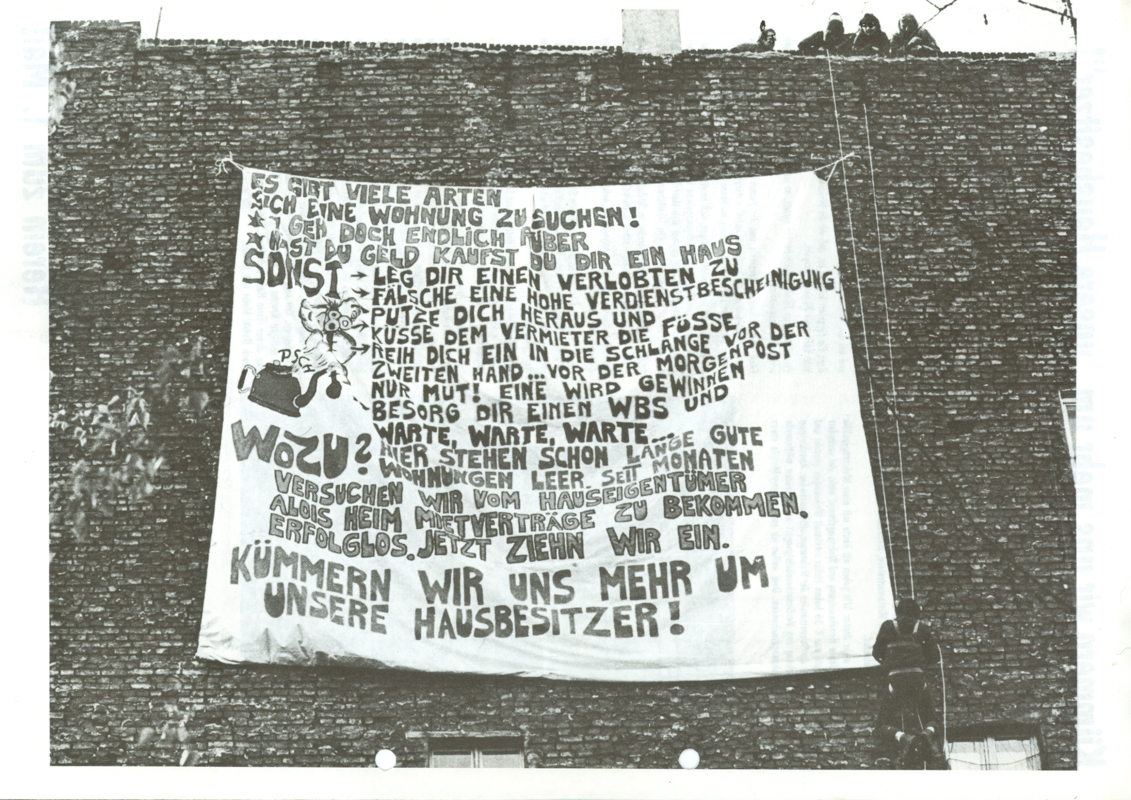 ES GIBT VIELE ARTEN
SICH EINE WOHNUNG ZU SUCHEN!
GEH DOCH ENDLICH RÜBER
HAST DU GELD KAUFST DU DIR EIN HAUS
SONST
LEG DIR EINEN VERLOBTEN ZU
FÄLSCHE EINE HOHE VERDIENSTBESCHEINIGUNG
PUTZE DICH HERAUS UND
KÜSSE DEM VERMIETER DIE FÜSSE
REIH DICH EIN IN DIE SCHLANGE VOR DER
ZWEITEN HAND...VOR DER MORGENPOST
NUR MUT! EINE WIRD GEWINNEN
BESORG DIR EINEN WBS UND
WARTE, WARTE, WARTE...
WOZU?
HIER STEHEN SCHON LANGE GUTE
WOHNUNGEN LEER. SEIT MONATEN
VERSUCHEN WIR VOM HAUSEIGENTÜMER
ALOIS HEIM MIETVERTRÄGE ZU BEKOMMEN.
ERFOLGLOS. JETZT ZIEHN WIR EIN.
KÜMMERN WIR UNS MEHR UM
UNSERE HAUSBESITZER!